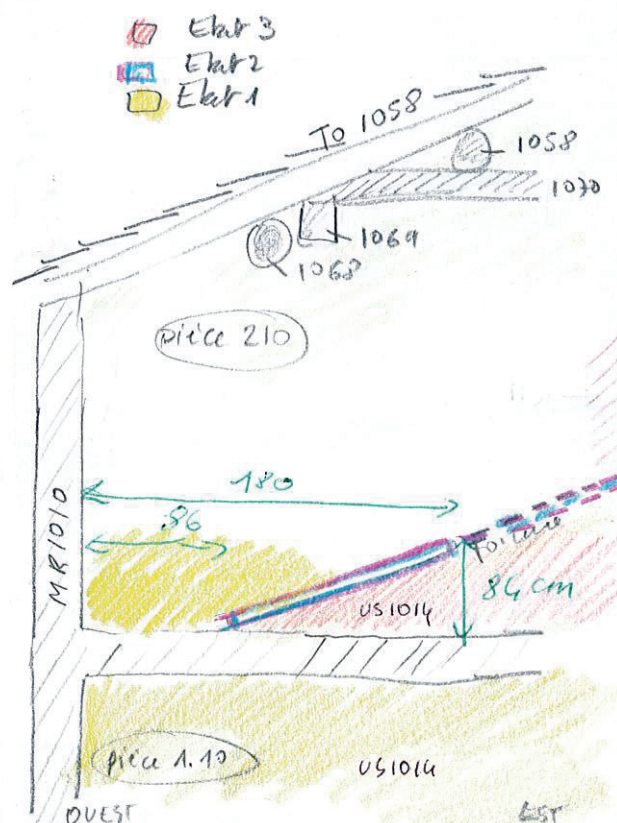 Etat 3
Etat 2
Etat 1
To 1058
1058
1070
1069
1068
pièce 210
180
96
MR1010
toiture
84 cm
US1014
pièce 1.10
US1014
OUEST
EST